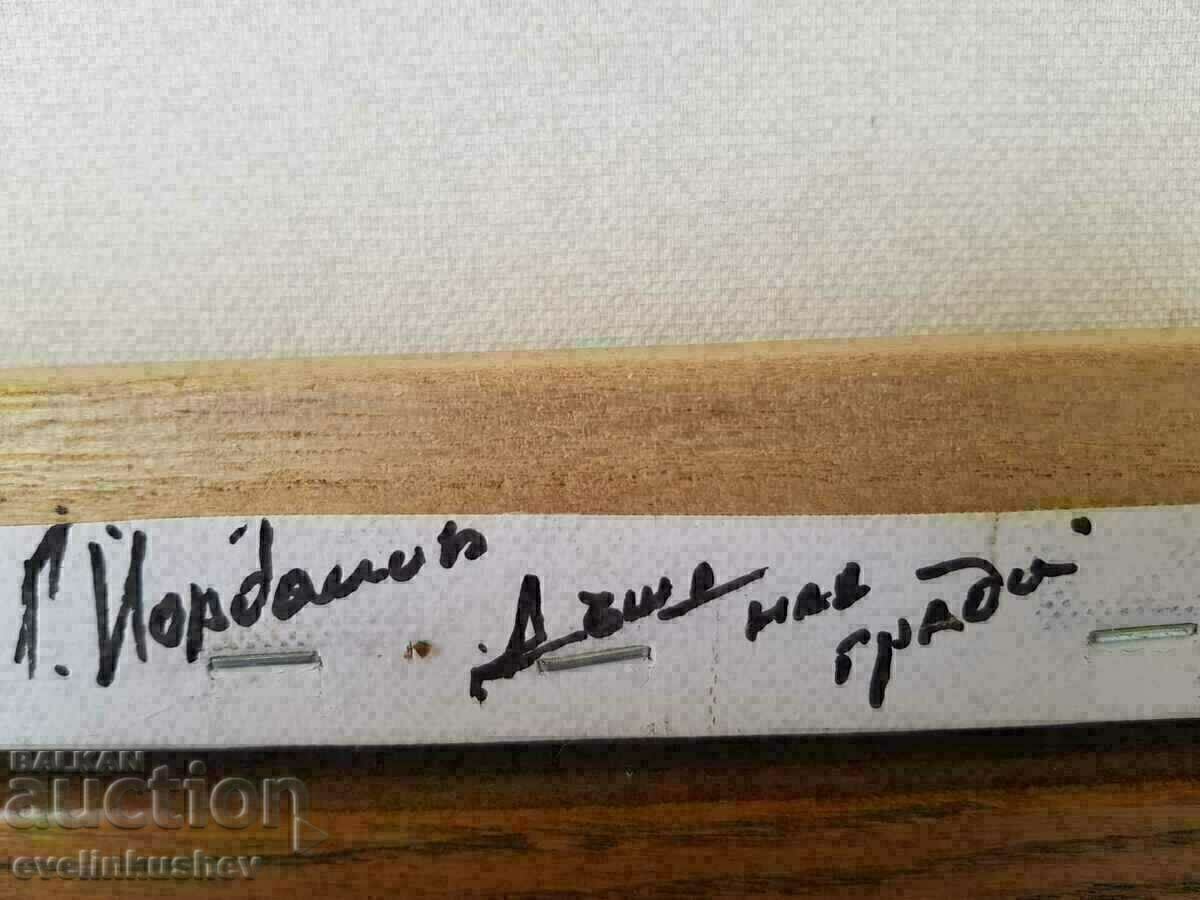 Г. Йорданов Дъжд над
града
BALKAN
auction
evelinkushev